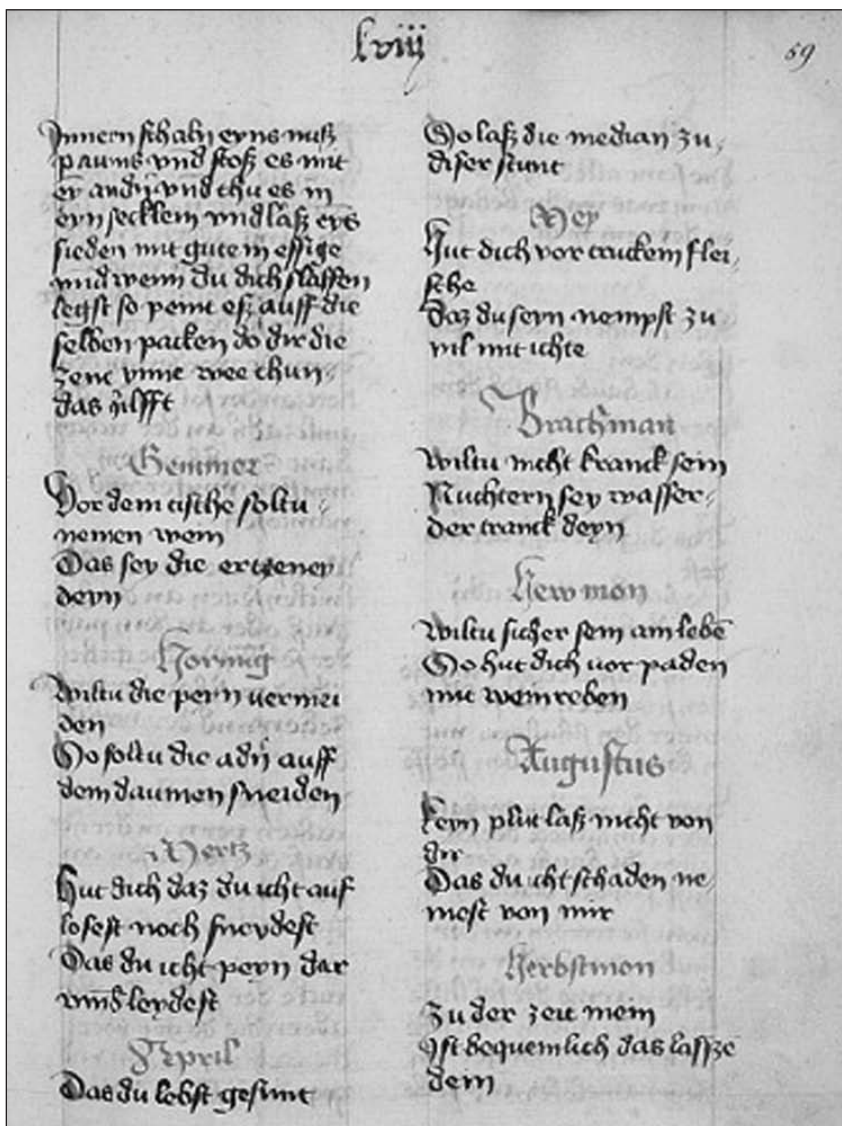 lviij
59
Innern schaln eyns nuß
paums vnd stoß es mit
eỹ andñ vnd thu es in
eyn secklein vnd laß eys
sieden mit gutem essige
vnd wenn du dich slaffen
legst so pint es auff die
selben packen do dir die
zene vnne wee thun
das hilfft
Genner
Vor dem tische soltu
nemen wein
Das sey die ertzeney
deyn
Hornug
Wiltu die peyn vermei
den
So soltu die adñ auff
dem daumen sneiden
Mertz
Hut dich daz du icht auf
losest noch sneydest
Das du icht peyn dar
vmb leydest
April
Das du lebst gesunt
So laß die median zu
diser stunt
Mey
Hut dich vor truckem flei
sche
Daz du seyn nempst zu
vil mit ichte
Brachman
Wiltu nicht kranck sein
Nuchtern sey wasser
der tranck deyn
Hewmon
Wiltu sicher sein am lebẽ
So hut dich vor paden
mit weinreben
Augustus
Keyn plut laß nicht von
dir
Das du icht schaden ne
mest von mir
Herbstmon
Zu der zeit mein
Ist bequemlich das lassze
dein